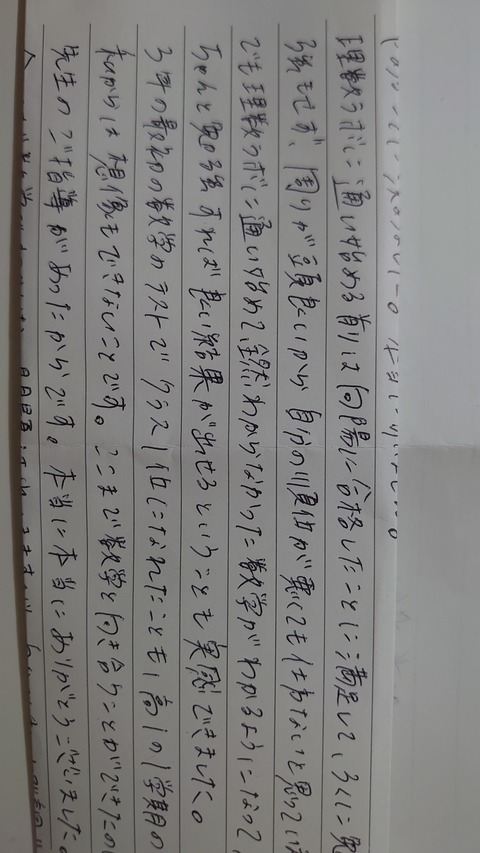 理数ラボに通い始める前は向陽に合格したことに満足して、ろくに勉
強もせず、周りが頭良いから自分の順位が悪くても仕方ないと思ってい
でも理数ラボに通い始めて全然わからなかった数学がわかるようになって、
ちゃんと勉強すれば良い結果が出せるということも実感できました。
3年の最初の数学のテストでクラス1位になれたことも、高1の1学期の
私からは想像もできないことです。ここまで数学と向き合うことができたの
先生のご指導があったからです。本当に本当にありがとうございました。